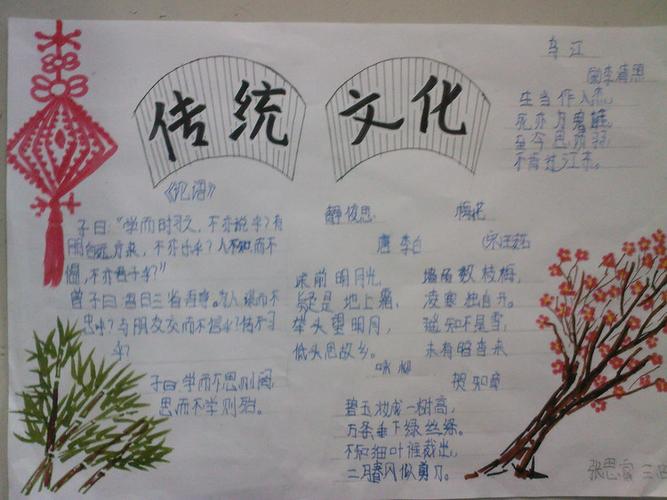 传统文化
乌江
宋李清照
生当作人杰,
死亦为鬼雄。
至今思项羽
不肯过江东。
《论语》
子曰:“学而时习之,不亦说乎?有
朋自远方来,不亦乐乎?人不知而不
愠,不亦君子乎?”
曾子曰:吾日三省吾身。为人谋而不
忠乎?与朋友交而不信乎?传不习
乎?
子曰学而不思则罔,
思而不学则殆。
静夜思
唐 李白
床前明月光,
疑是地上霜,
举头望明月,
低头思故乡。
梅花
宋 王安石
墙角数枝梅,
凌寒独自开。
遥知不是雪,
未有暗香来
咏柳
贺知章
碧玉妆成一树高,
万条垂下绿丝绦。
不知细叶谁裁出,
二月春风似剪刀。
张思